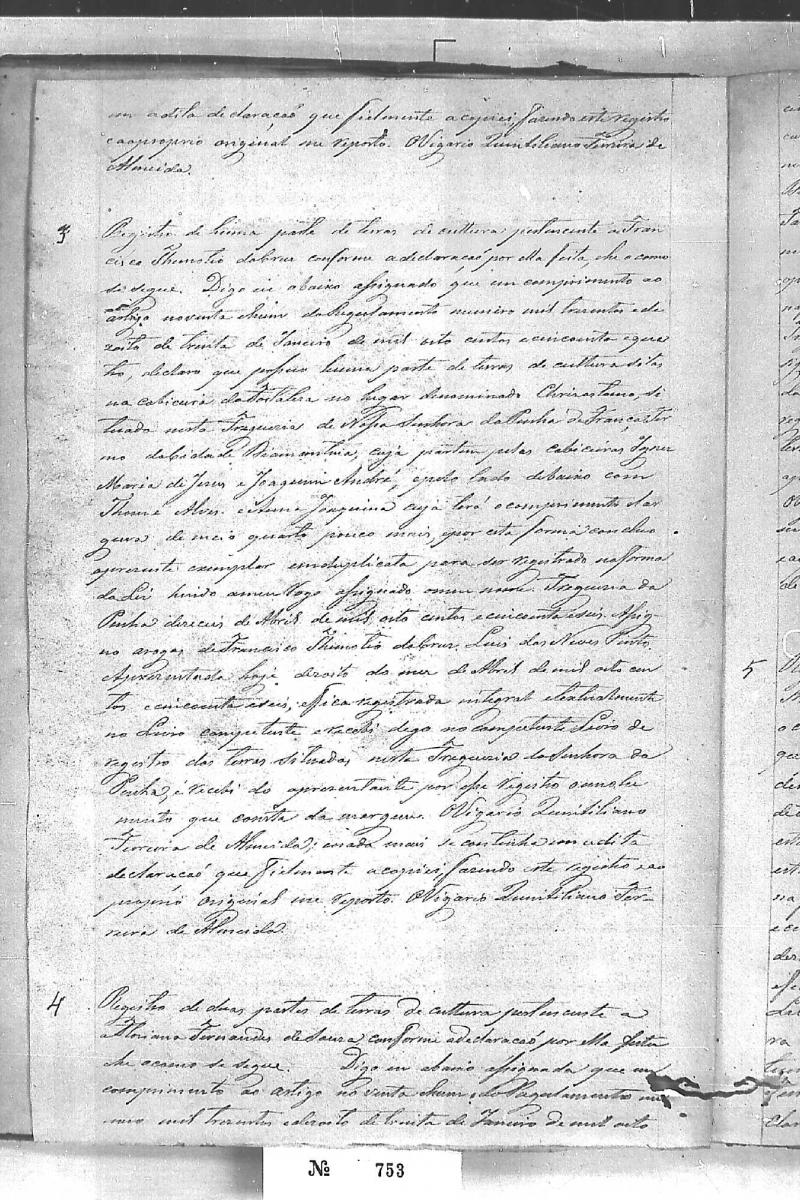 em a dita declaração que fielmente a copiei, fazendo este registro
e ao proprio original me reporto. O Vigario Quintiliano Ferreira de
Almeida.
3
Registro de huma parte de terras de cultura pertencente a Fran
cisco Thimotio da Cruz conforme a declaração por elle feita, che o como
se segue. Digo eu abaixo assignado que em comprimento ao
artigo noventa e hum do Regulamento numero mil trezentos e de
zoito de trinta de Janeiro de mil oito centos e cincoenta e qua
tro, declaro que possuo huma parte de terras de cultura sitas
na cabiceira da Fortaleza no lugar denominado, si
tuado nesta Freguezia de Nossa Senhora da Penha de França Ter
mo da Cidade de Diamantina, cuja partem pelas cabiceiras Ignez
Maria de Jesus e Joaquim André, e pelo lado debaixo com
Thome Alves e Anna Joaquina cuja terá o comprimento e lar
gura de meio quarto pouco mais, e por esta forma concluo
apresente exemplar em duplicata para ser registrado na forma
da Lei hindo a meu rogo assignado o meu nome. Freguezia da
Penha dezeceis de Abril de mil oito centos e cincoenta e seis. Assig
no a rogo de Francisco Thimotio da Cruz. Luis das Neves Pinto.
Apresentada hoje dezoito do mez de Abril de mil oito cen
tos e cincoenta e seis, e fica registrada integral e textualmente
no Livro competente e recebi digo no competente Livro de
registro das terras situadas nesta Freguezia da Senhora da
Penha, e recebi do apresentante por esse registro o emolu
mento que consta da margem. O Vigario Quintiliano
Ferreira de Almeida; e nada mais se continha em a dita
declaração que fielmente a copiei, fazendo este registro e ao
proprio original me reporto. O Vigario Quintiliano Fer-
reira de Almeida.
4
Registro de duas partes de terras de cultura pertencente a
Floriana Fernandes de Souza conforme a declaração por ella feita
che o como se segue. Digo eu abaixo assignada que em
comprimento ao artigo noventa e hum do Regulamento nu
mero mil trezentos e dezoito de trinta de Janeiro de mil oito
5
Nº 753